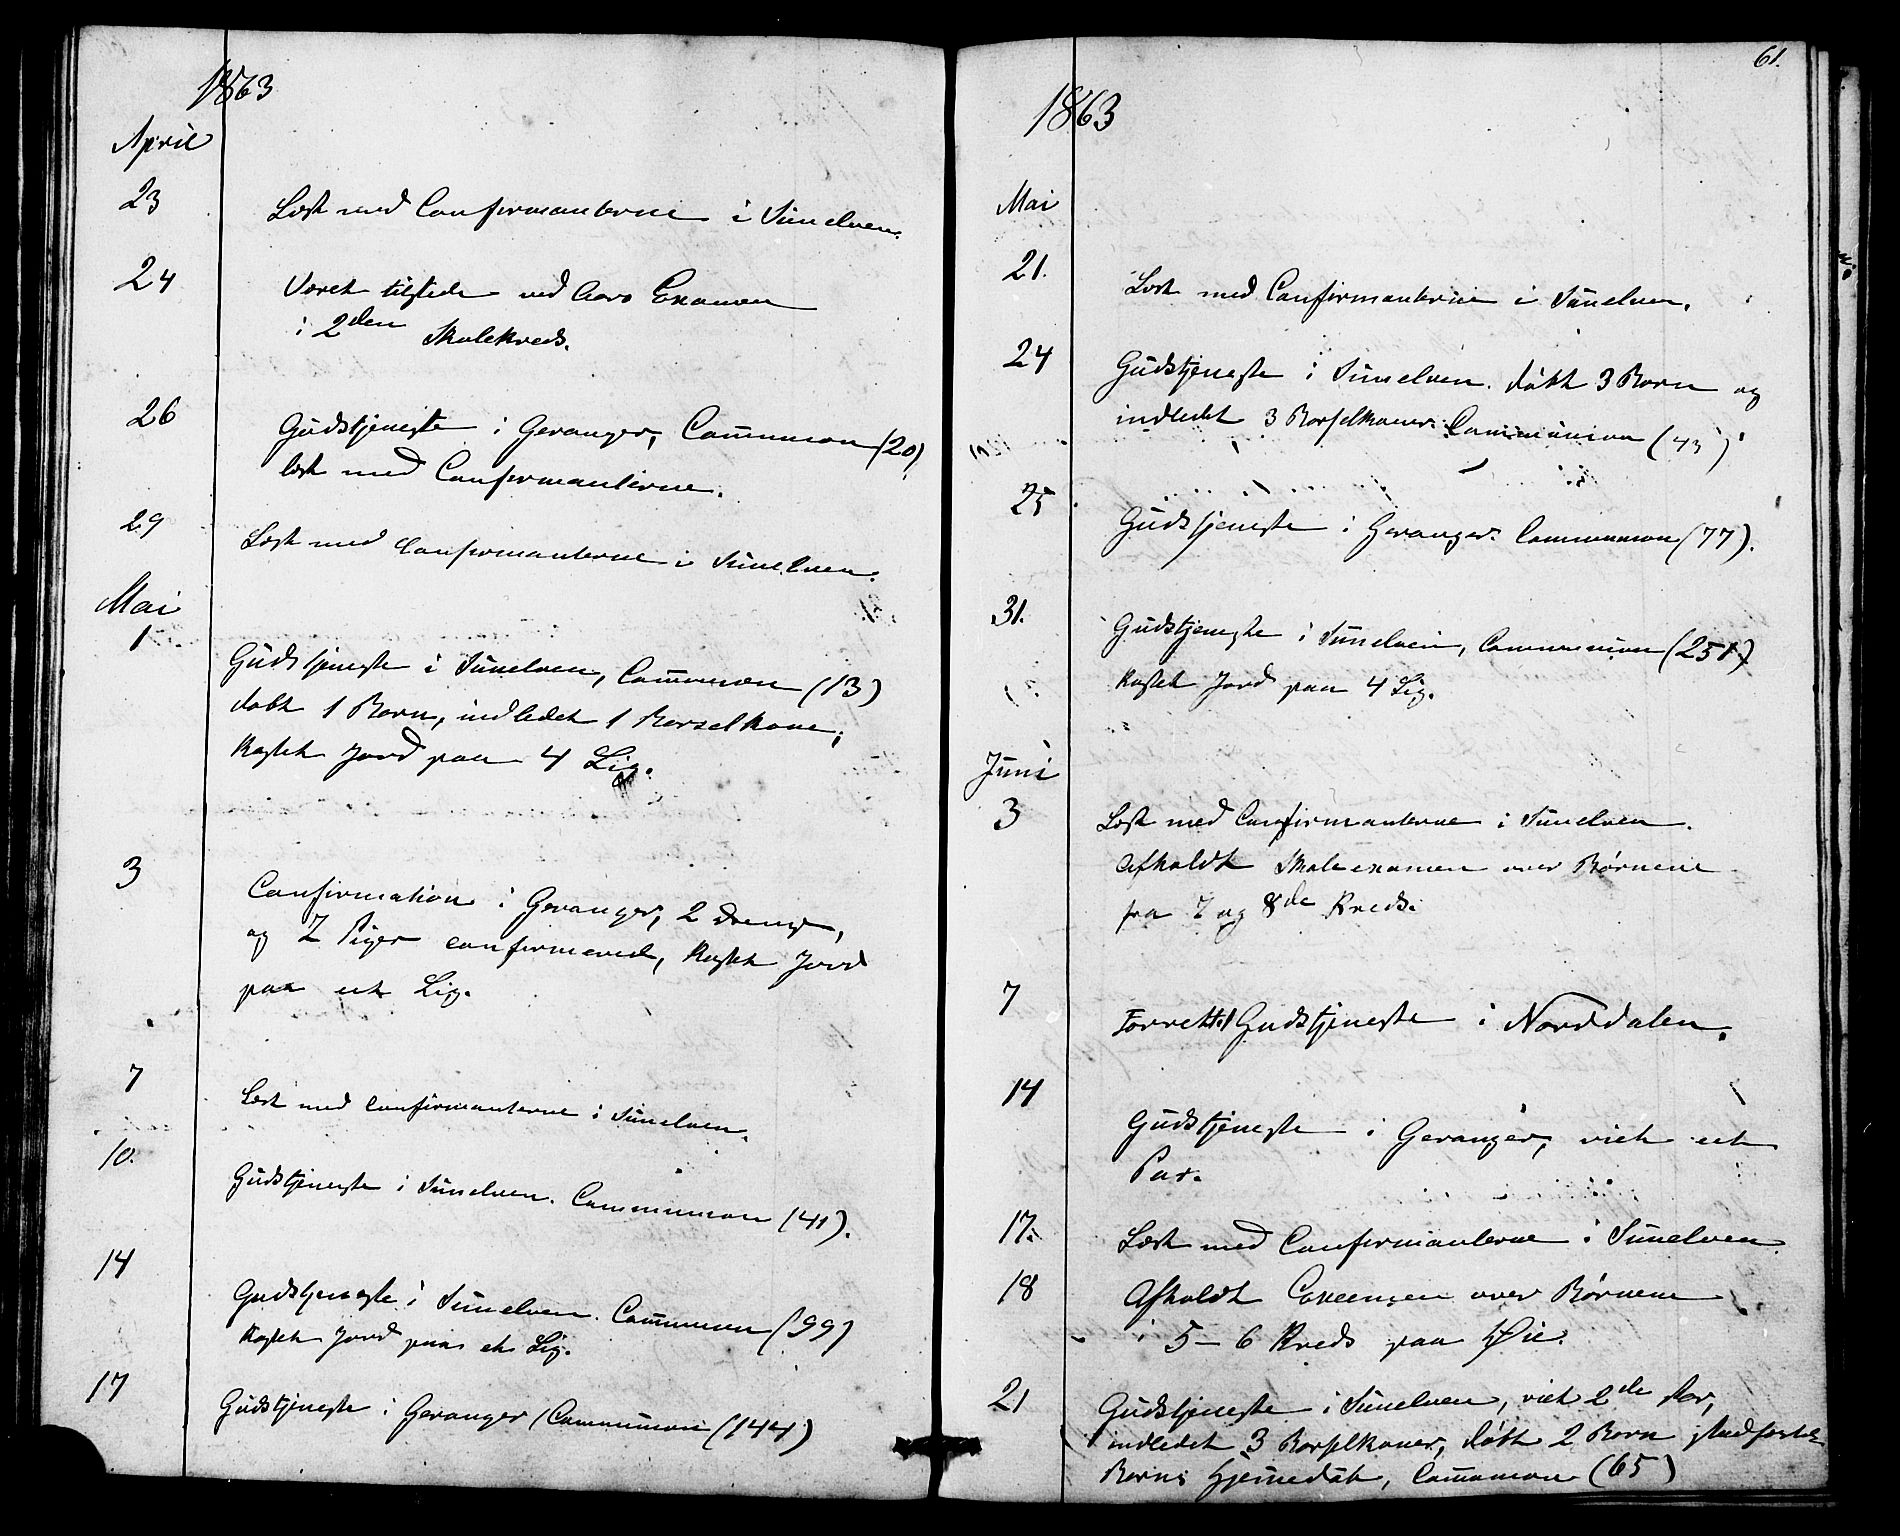 1863
April
23 Læst med Confirmanterne i Sunelven.
24 Været tilstede ved Aars Examen
i 2den Skolekreds.
26 Gudstjeneste i Geranger, Communion (20)
læst med Confirmanterne.
29 Læst med Confirmanterne i Sunelven.
Mai
1 Gudstjeneste i Sunelven, Communion (13)
døbt 1 Barn, indledet 1 Barselkone,
kastet Jord paa 4 Lig.
3 Confirmation i Geranger, 2 Drenge,
og 7 Piger confirmered, kastet Jord
paa et Lig.
7 Læst med Confirmanterne i Sunelven.
10. Gudstjeneste i Sunelven. Communion (41).
14 Gudstjeneste i Sunelven. Communion (99)
kastet Jord paa et Lig.
17 Gudstjeneste i Geranger, Communion (144)
61.
1863
Mai
21. Læst med Confirmanterne i Sunelven.
24 Gudstjeneste i Sunelven. døbt 3 Børn og
indledet 3 Barselkoner. Communion (43)
25 Gudstjeneste i Geranger. Communion (77).
31. Gudstjeneste i Sunelven, Communion (251)
kastet Jord paa 4 Lig.
Juni
3 Læst med Confirmanterne i Sunelven.
Afholdt Skoleexamen over Børnene
fra 7 og 8de Kreds.
7 Forrettet Gudstjeneste i Norddalen.
14 Gudstjeneste i Geranger, viet et
Par.
17. Læst med Confirmanterne i Sunelven.
18 Afholdt Examen over Børnene
i 5-6 Kreds paa Øie.
21 Gudstjeneste i Sunelven, viet 2de Par,
indledet 3 Barselkoner, døbt 2 Børn, stadfæstet
Barns Hjemmedåb, Communion (65)